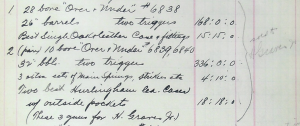 1 28 bore "Over & Under" #6838
26" barrels two triggers 168:0:0
Best Single Oak & Leather Case & fittings 15:15:0
2 (pair) 10 bore "Over & Under" 6839, 6840
30" bbls two triggers 336:0:0
3 extra sets of Main Springs, Strikers etc 4:10:0
Two Best Hurlingham Lea. Cases
w/ outside pockets 18:18:0
(These 3 guns for H. Graves Jr.)